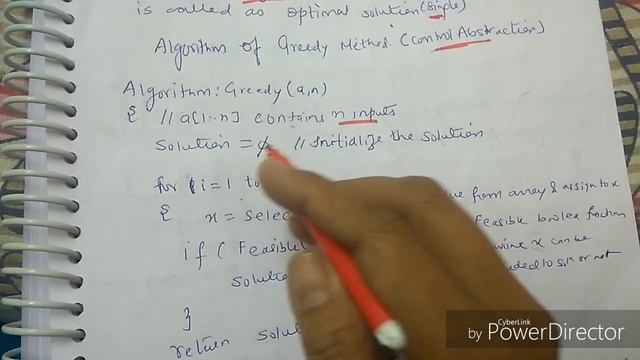 is called as optimal solution(single)
Algorithm of Greedy Method (Control Abstraction)
Algorithm: Greedy (a,n)
{ // a[1..n] contains n inputs
Solution = ϕ // Initialize the solution
for i=1 to
from array & assign to x
{ x = Selec
Feasible boolea function
if ( Feasible(
x can be
solution
to soln or not
}
return solu
CyberLink
by PowerDirector